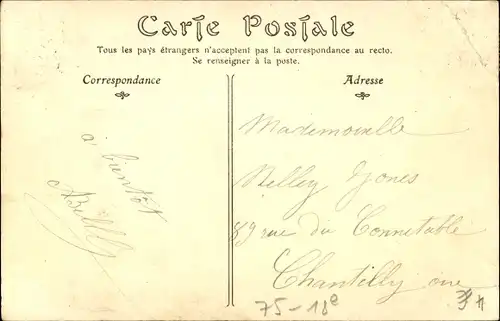 Carte Postale
Tous les pays étrangers n'acceptent pas la correspondance au recto.
Se renseigner à la poste.
Correspondance
Adresse
à bientôt
Mademoiselle
Nelley Jones
89 rue du Connetable
Chantilly Oise
75-18e